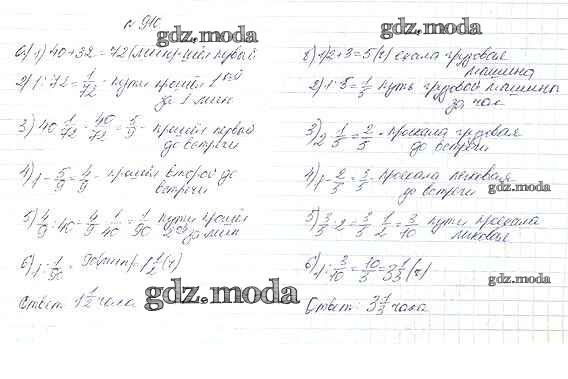 № 910
gdz.moda
gdz.moda
а) 1) 40+32 = 72 (мин) первый
2) 1:72 = 1/72 - пути 1ый
за 1 мин
3) 40 · 1/72 = 40/72 = 5/9 - первый
до встречи
4) 1 - 5/9 = 4/9 - второй до
встречи
5) 4/9 : 40 = 4/9 · 1/40 = 1/90 пути
2ой за мин
6) 1 : 1/90 = 90 мин = 1 1/2 (ч)
Ответ: 1 1/2 часа
gdz.moda
1) 2+3 = 5 (ч) ехала грузовая
машина
2) 1:5 = 1/5 путь грузовой машины
за час
3) 2 · 1/5 = 2/5 - проехала грузовая
до встречи
4) 1 - 2/5 = 3/5 - проехала легковая
до встречи
gdz.moda
5) 3/5 : 2 = 3/5 · 1/2 = 3/10 пути проехала
легковая
6) 1 : 3/10 = 10/3 = 3 1/3 (ч)
gdz.moda
Ответ: 3 1/3 часа